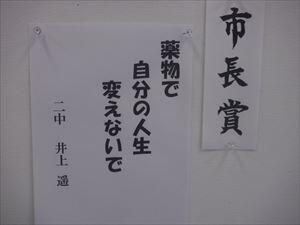 市長賞
薬物で
自分の人生
変えないで
二中 井上 遥